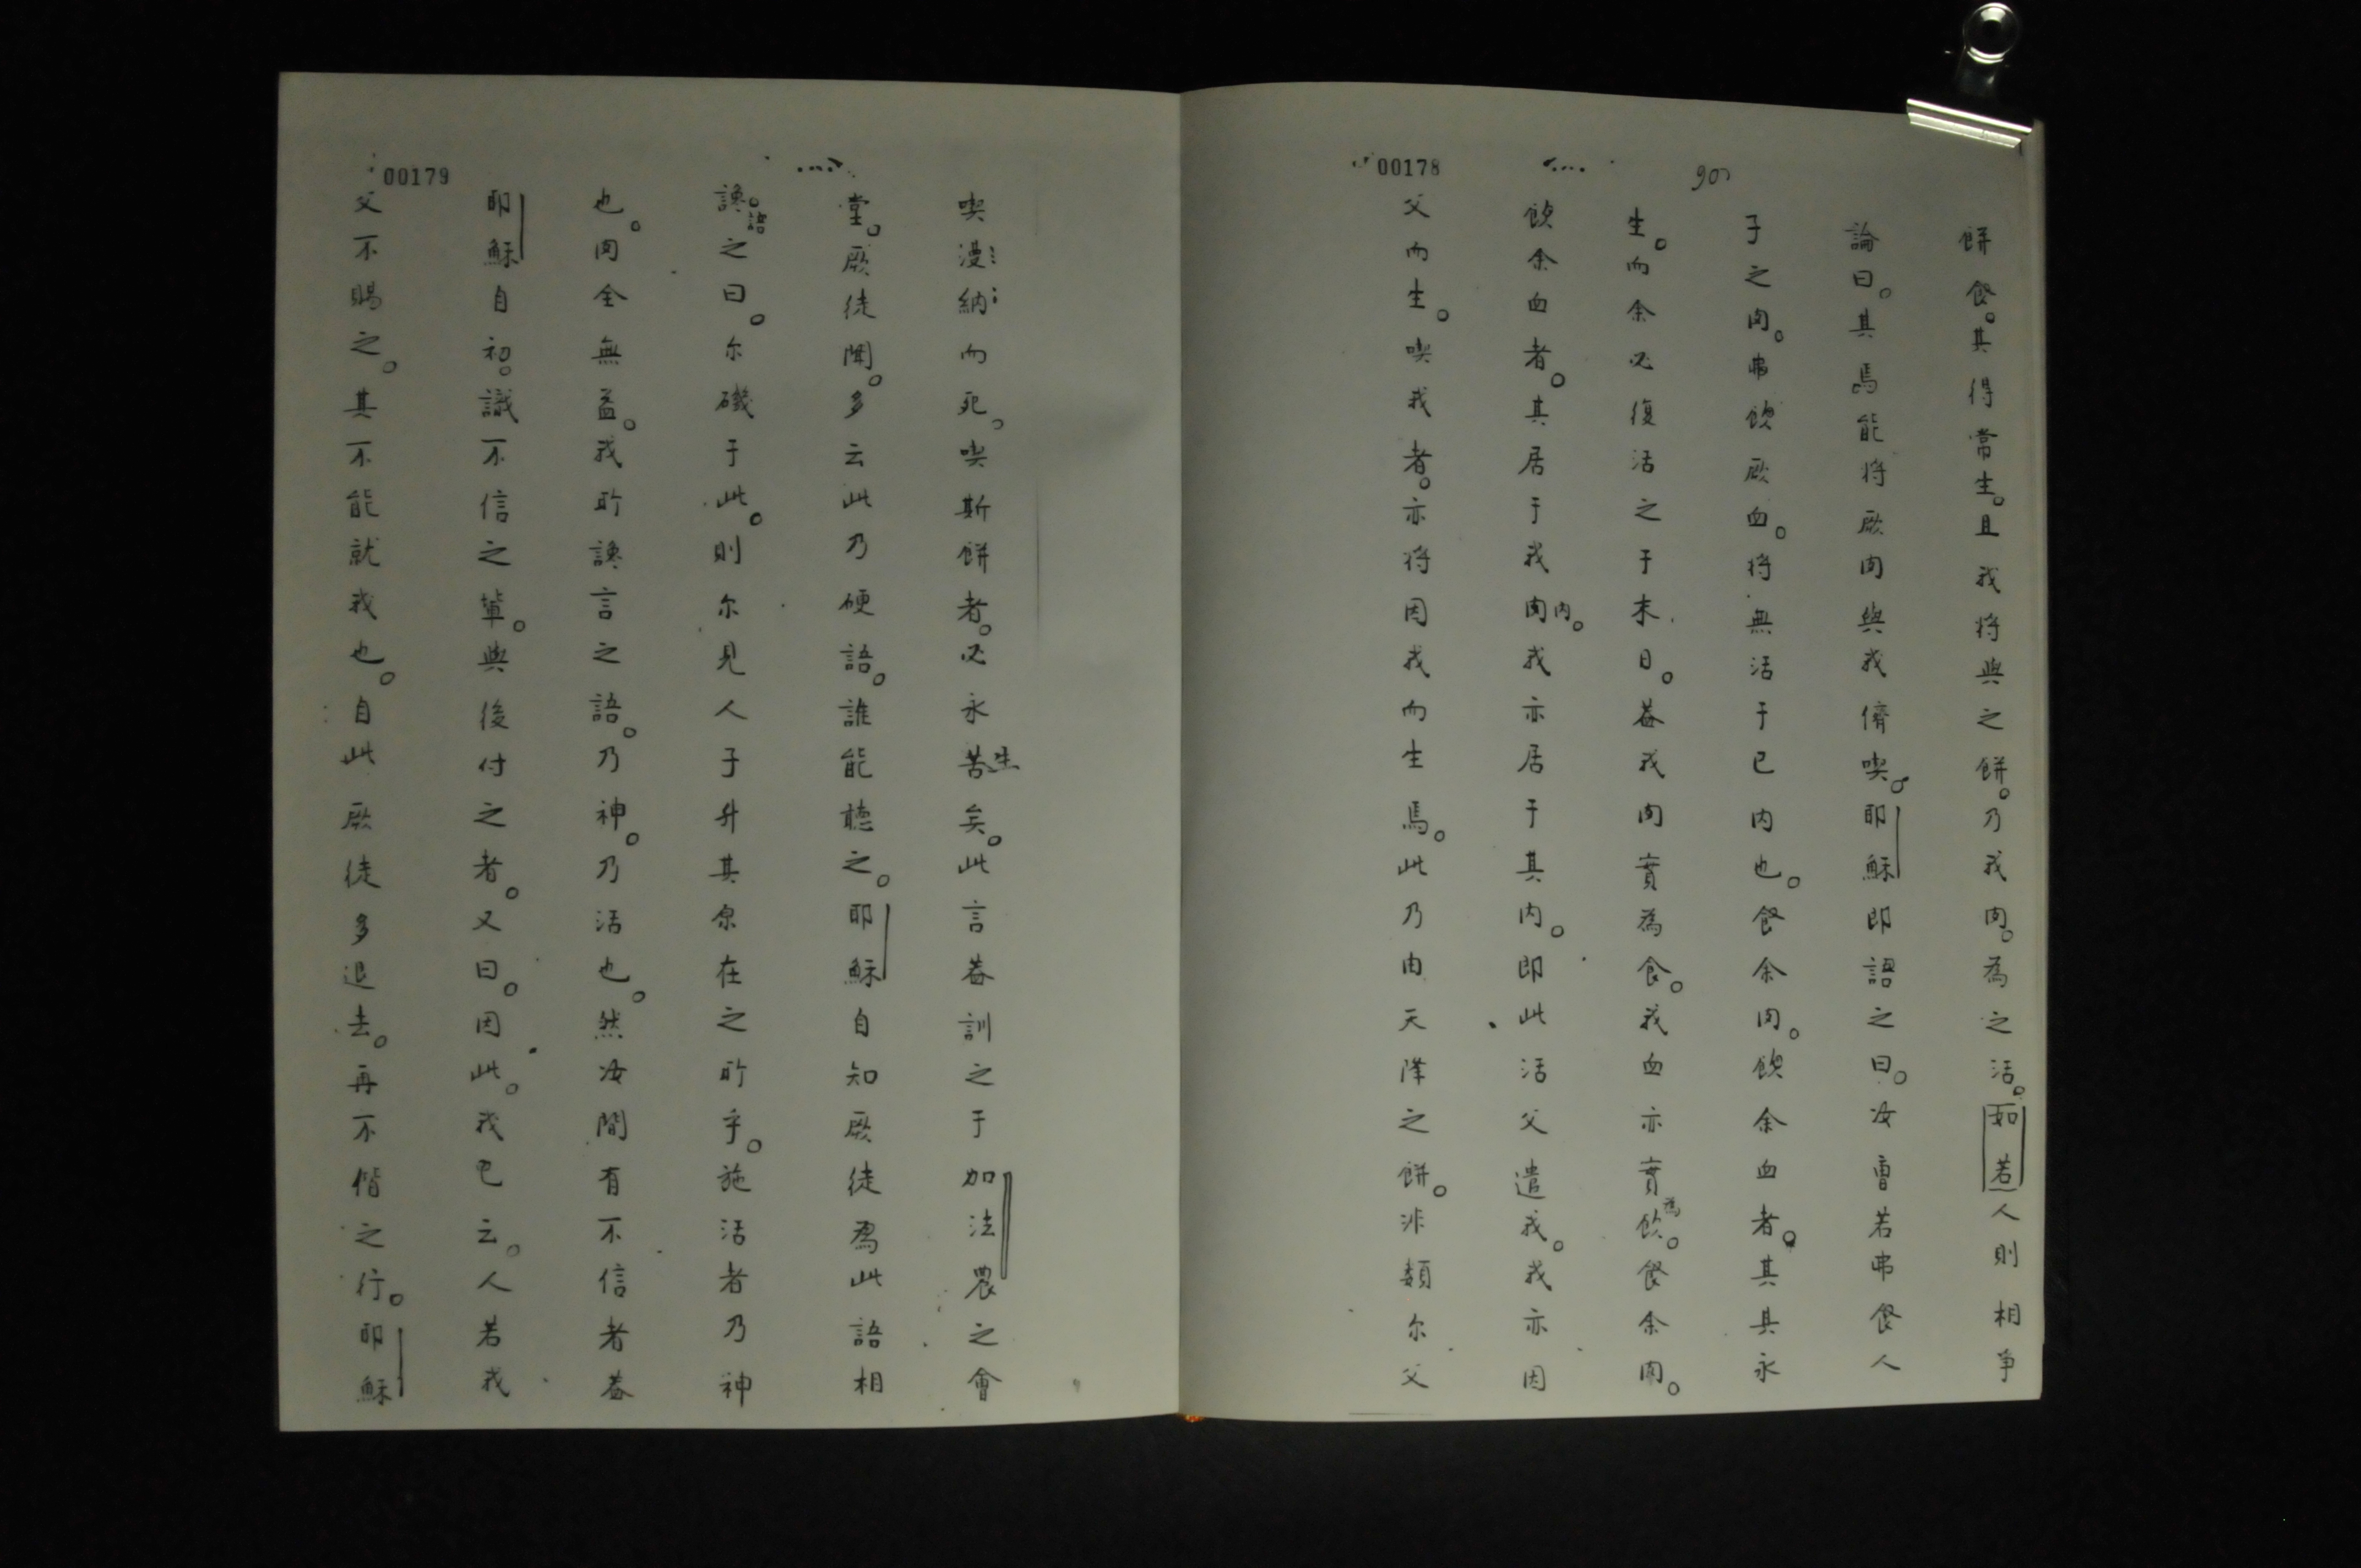 00178
90
餅食。其得常生。且我將與之餅。乃我肉。為之活。如若人則相爭
論曰。其焉能將厥肉與我儕喫。耶穌即語之曰。汝曹若弗食人
子之肉。弗飲厥血。將無活于已內也。食余肉。飲余血者。其具永
生。而余必復活之于末日。葢我肉實為食。我血亦實為飲。食余肉。
飲余血者。其居于我肉內。我亦居于其內。即此活父遣我。我亦因
父而生。喫我者。亦將因我而生焉。此乃由天降之餅。非類尔父
00179
喫漫納而死。喫斯餅者。必永苦生矣。此言葢訓之于加法農之會
堂。厥徒聞。多云此乃硬語。誰能聽之。耶穌自知厥徒為此語相
讒。語之曰。尔磯于此。則尔見人子升其原在之所乎。施活者乃神
也。肉全無益。我所讒言之語。乃神。乃活也。然汝間有不信者葢
耶穌自初。識不信之輩。與後付之者。又曰。因此。我已云。人若我
父不賜之。其不能就我也。自此厥徒多退去。再不偕之行。耶穌